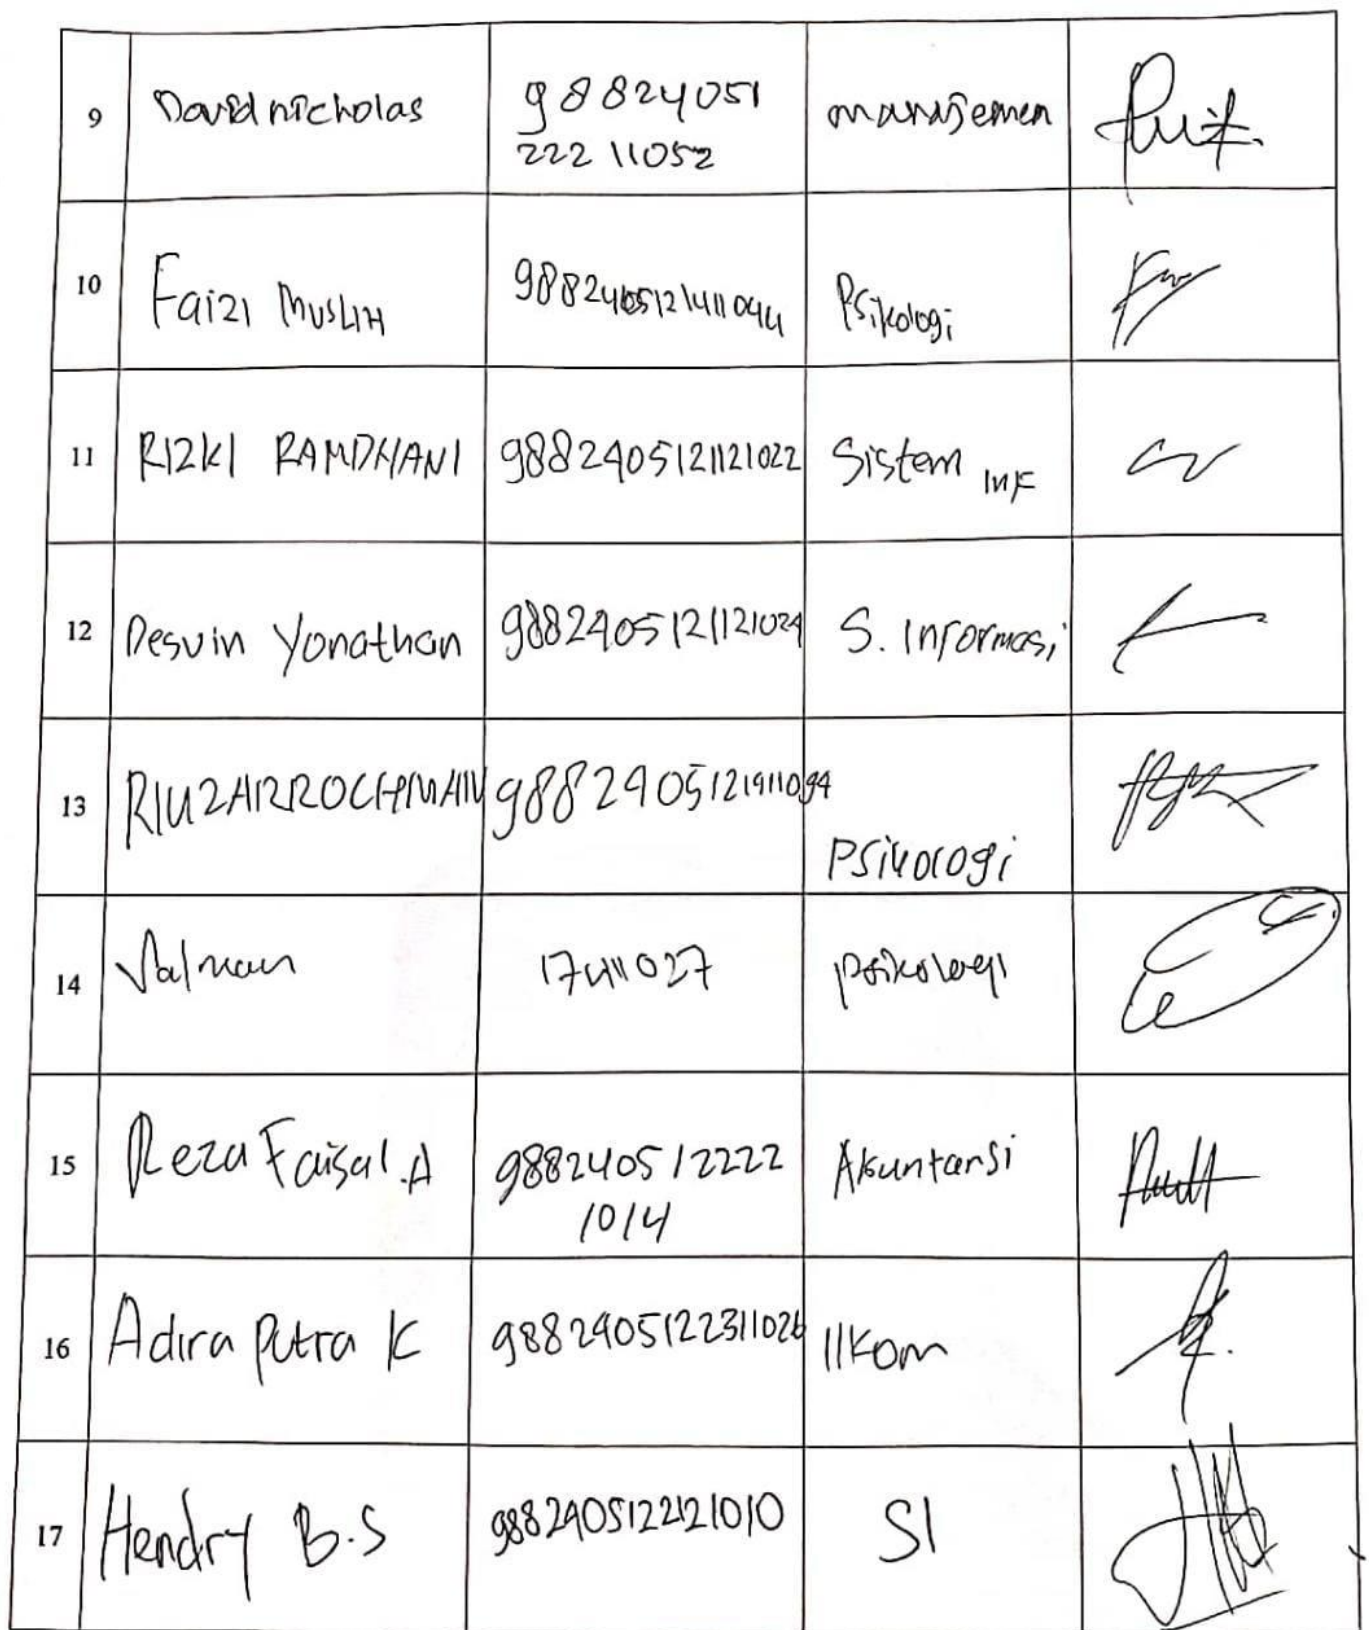 9 David nicholas 98824051 manajemen
22211052
10 Faizi Muslih 9882405121411044 Psikologi
11 RIZKI RAMDHANI 9882405121121022 Sistem inf
12 Desvin Yonathan 9882405121121024 S. Informasi
13 9882405121911094
Psikologi
14 17411027 psikologi
15 Reza Faisal.A 988240512222 Akuntansi
1014
16 Adira Putra K 9882405122311026 Ilkom
17 Hendry B.S 9882405122121010 SI